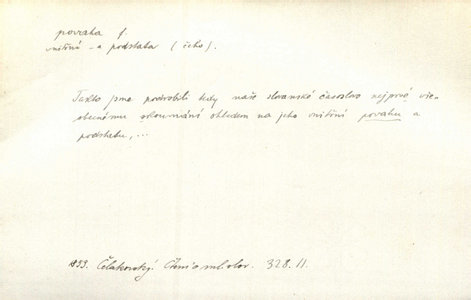 povaha f.
vnitřní -a podstata (čeho).
Takto jsme podrobili tedy naše slovanské časoslovo nejprvé vše-
obecnému skoumání ohledem na jeho vnitřní povahu a
podstatu,...
1853. Čelakovský 328. II.